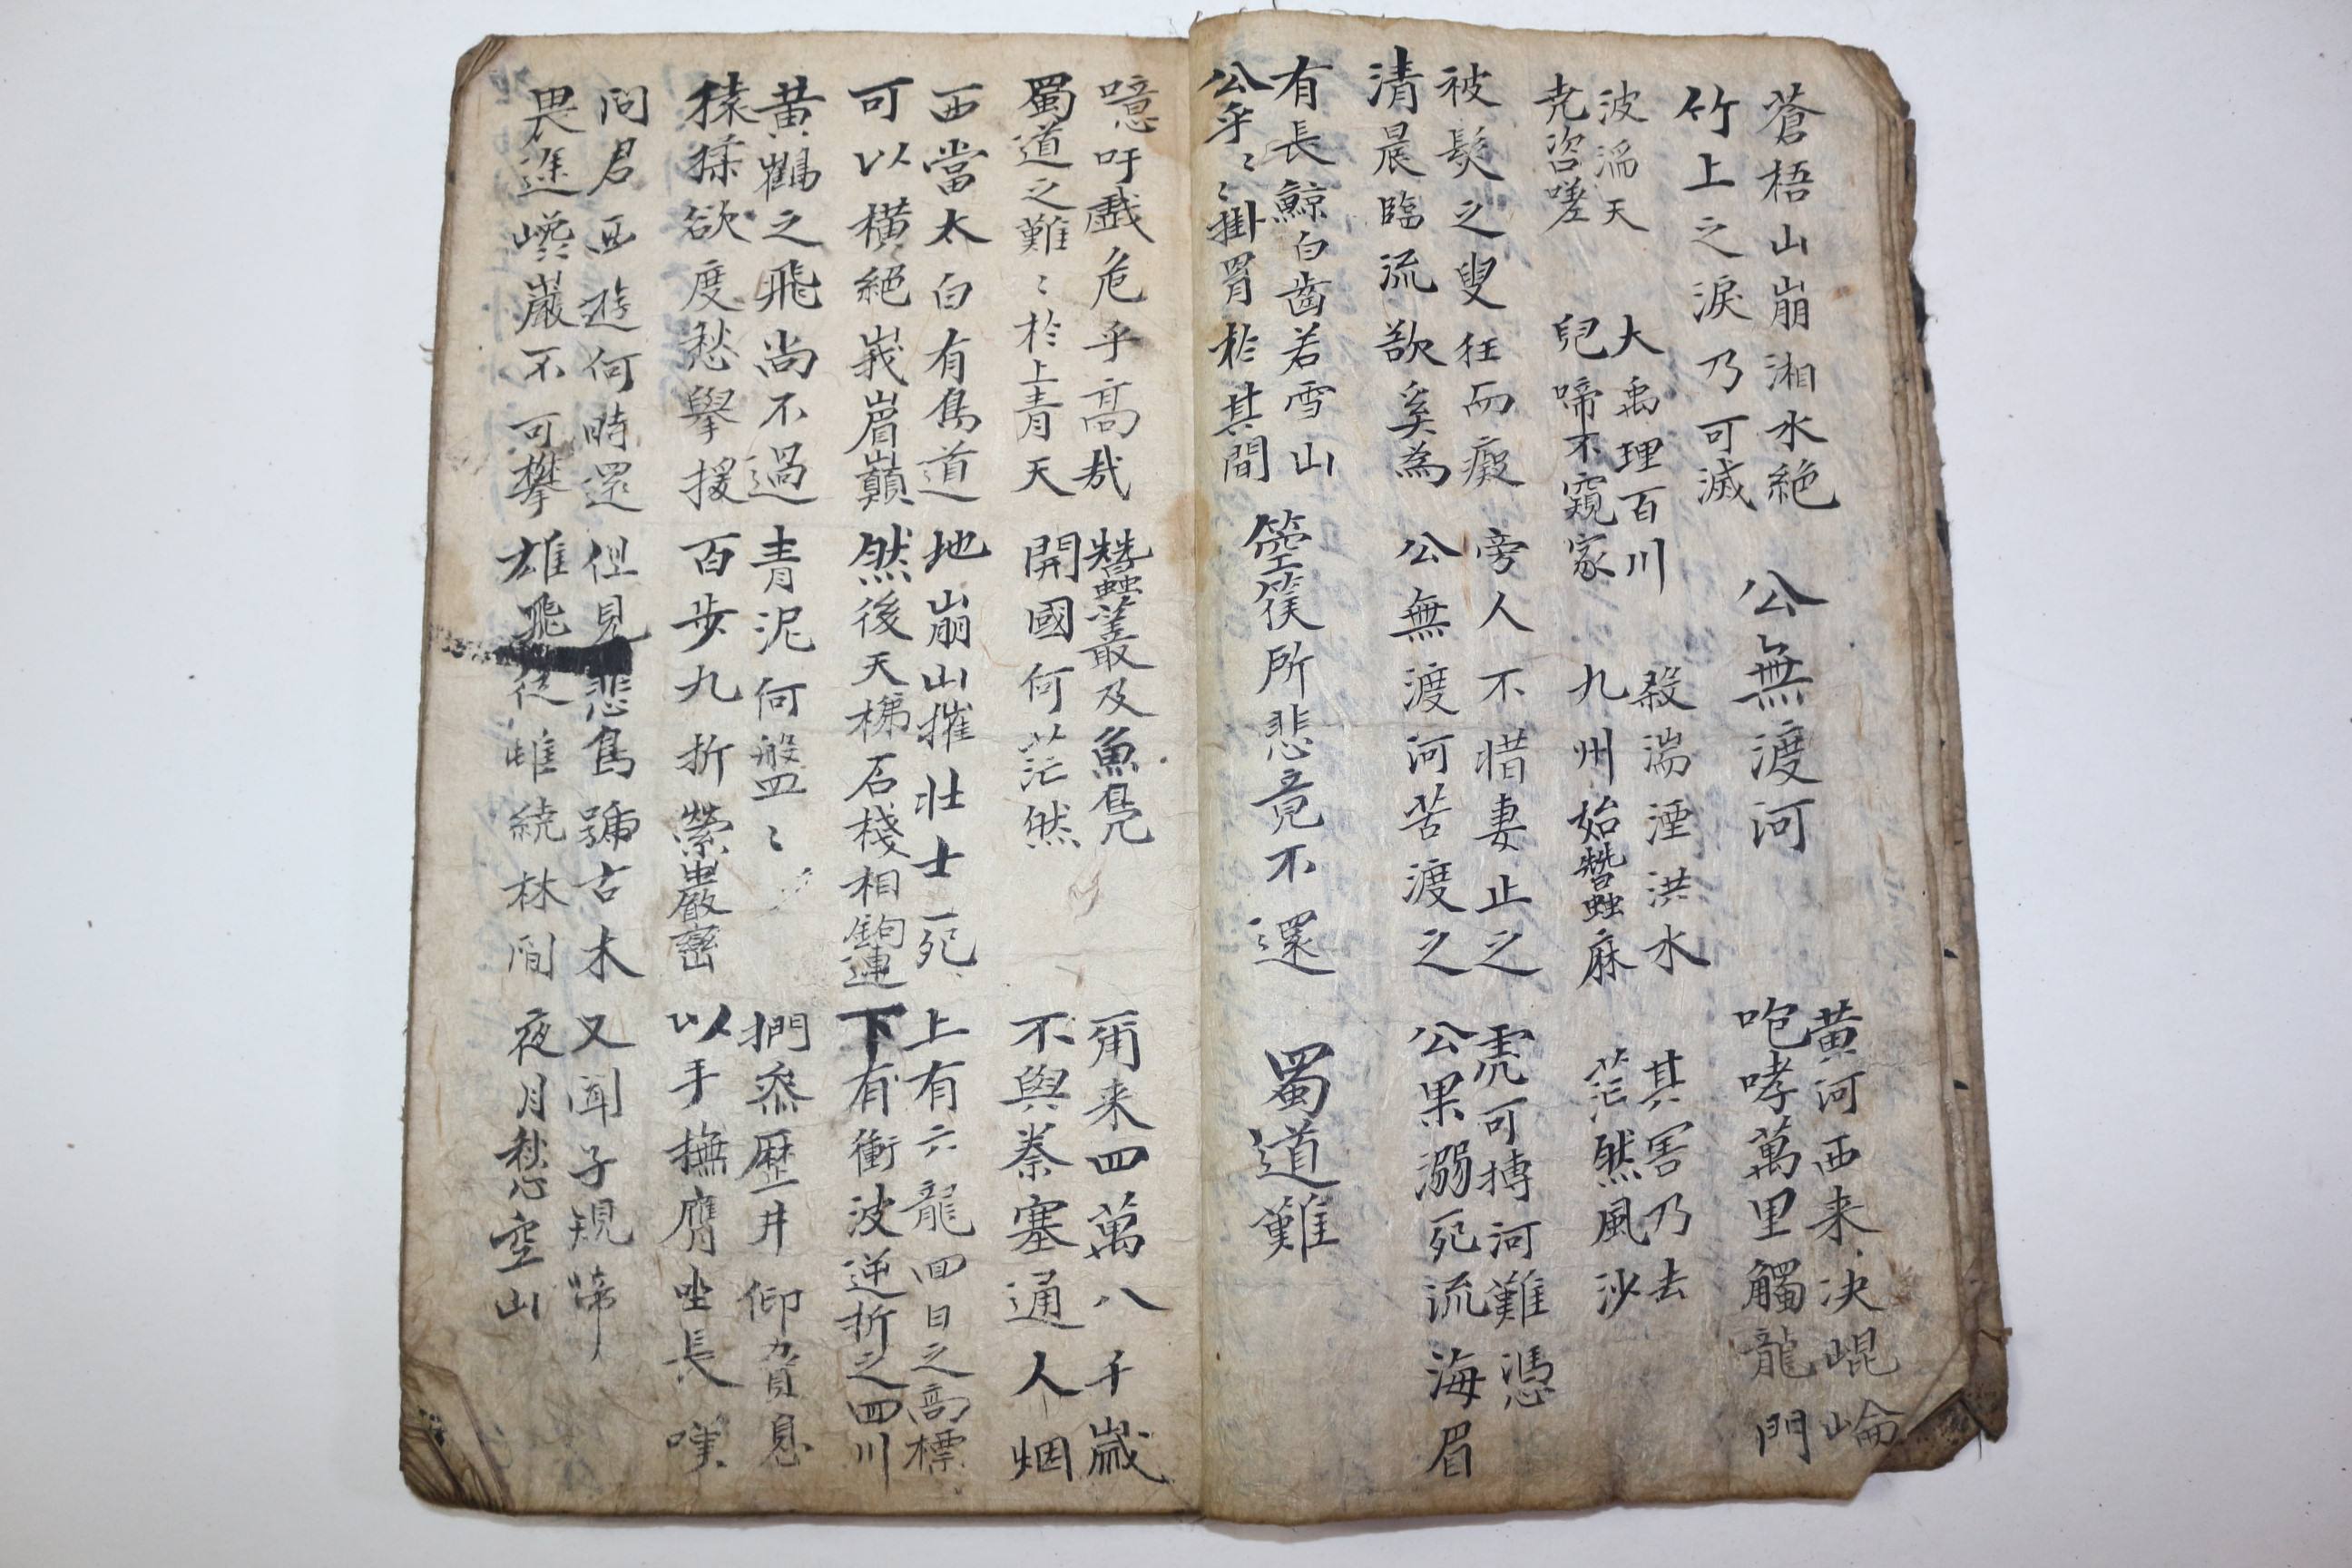 蒼梧山崩湘水絶
竹上之淚乃可滅
公無渡河
黄河西来决崐崘
咆哮萬里觸龍門
波滔天
尭咨嗟
大禹理百川
兒啼不窺家
殺湍湮洪水
九州始蠶麻
其害乃去
茫然風沙
被髮之叟狂而癡
清晨臨流欲奚為
旁人不惜妻止之
公無渡河苦渡之
虎可搏河難憑
公果溺死流海眉
有長鯨白齒若雪山
公乎〻〻掛罥於其間
箜篌所悲竟不還
蜀道難
噫吁戲危乎高哉
蜀道之難〻於上青天
蠶叢及魚鳧
開國何茫然
爾来四萬八千歲
不與秦塞通人烟
西當太白有鳥道
可以横絶峩眉巔
地崩山摧壯士死
然後天梯石棧相鉤連
上有六龍回日之高標
下有衝波逆折之回川
黄鶴之飛尚不過
猿猱欲度愁擧援
青泥何盤〻
百步九折縈巖巒
捫參歷井仰脅息
以手撫膺坐長嘆
問君西遊何時還
畏途巉巖不可攀
但見悲鳥號古木
雄飛從雌繞林間
又聞子規啼
夜月愁空山